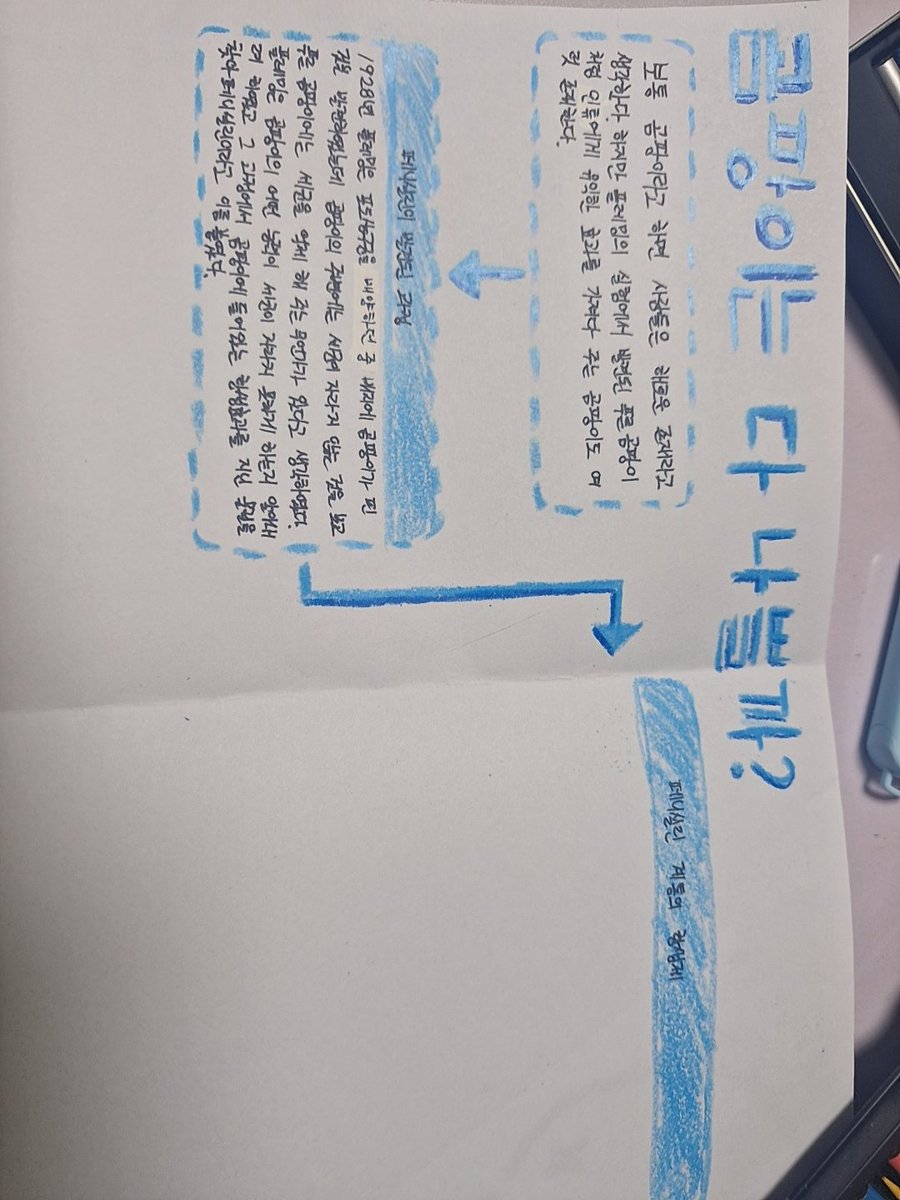 곰팡이는 다 나쁠까?
보통 곰팡이라고 하면 사람들은 해로운 존재라고
생각한다. 하지만 플레밍의 실험에서 발견된 푸른 곰팡이
처럼 인류에게 유익한 효과를 가져다 주는 곰팡이도 여
럿 존재한다.
페니실린이 발견된 과정
1928년 플레밍은 포도상구균을 배양하던 중 배지에 곰팡이가 핀
것을 발견하였는데 곰팡이의 주변에는 세균이 자라지 않는 것을 보고
푸른 곰팡이에는 세균을 약해 주는 무언가가 있다고 생각하였다.
플레밍은 곰팡이의 어떤 물질이 세균이 자라지 못하게 하는지 알아내
려 하였고 그 과정에서 곰팡이에 들어있는 항생효과를 지닌 물질을
찾아 페니실린이라고 이름 붙였다.
페니실린 계통의 항생제